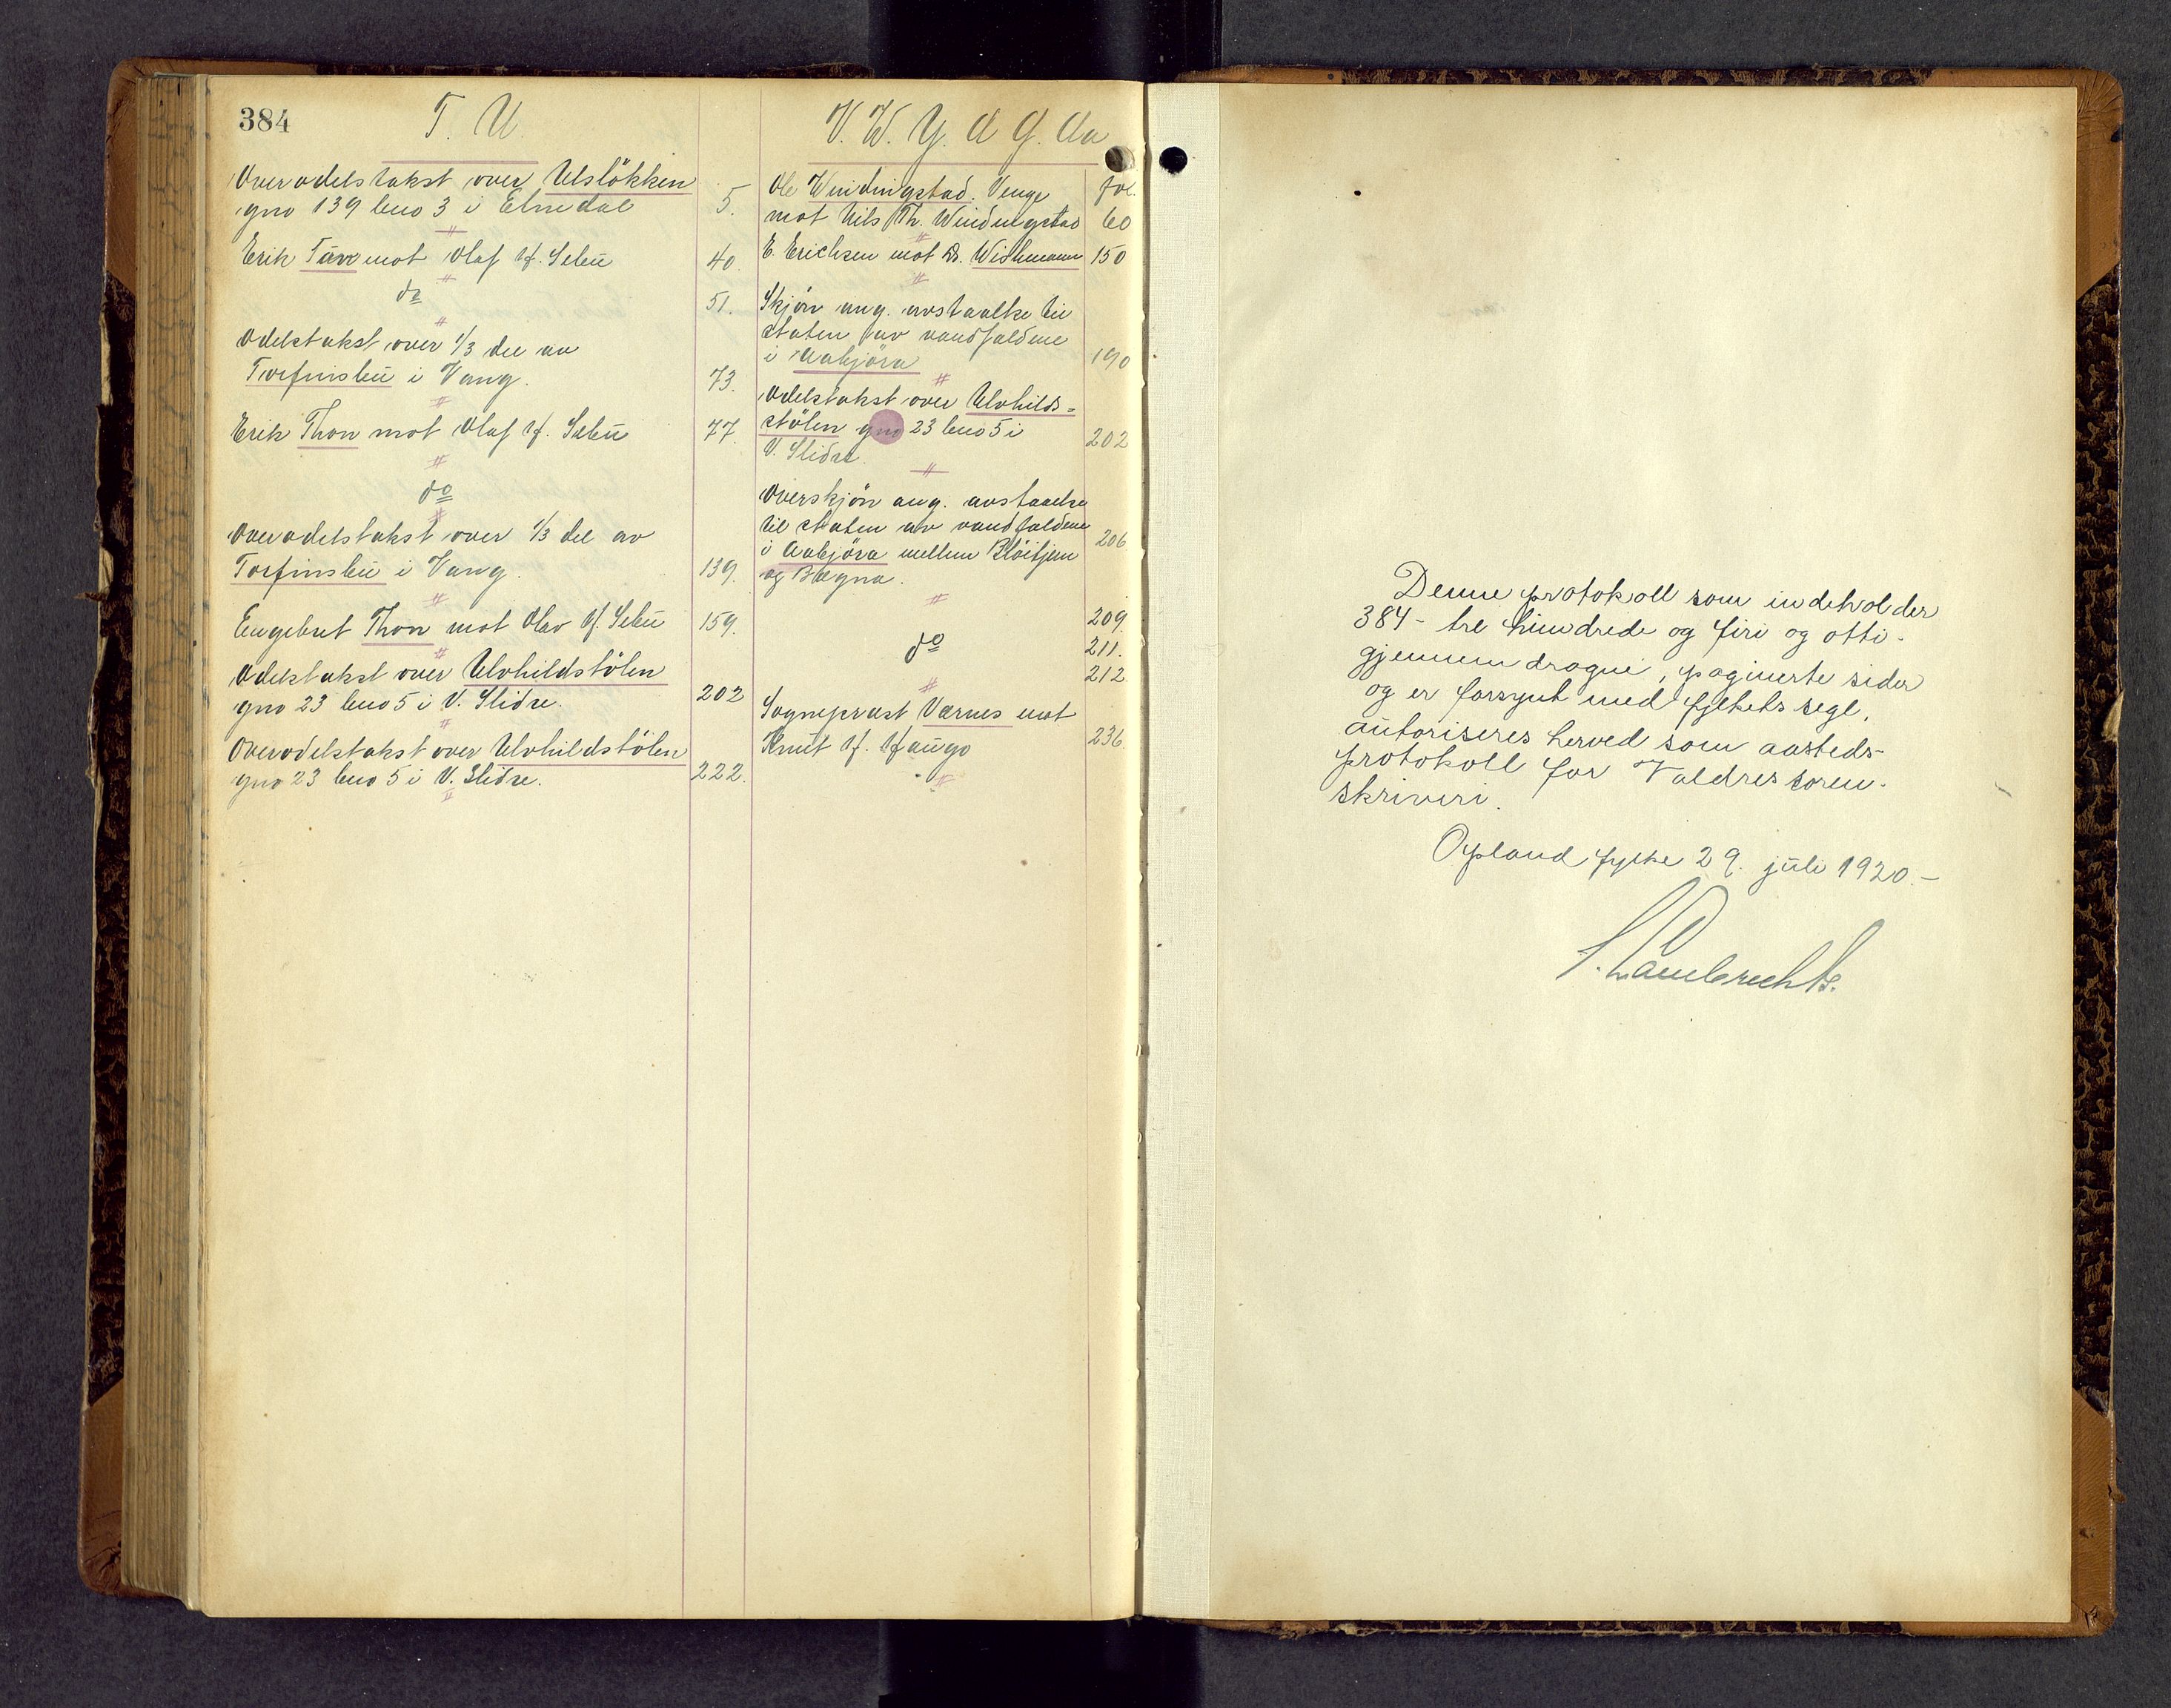 384
T. U.
Overodelstakst over Ulsløkken
gno 139 bno 3 i Etnedal 5.
Erik Tare mot Olaf H. Sebu 40.
do 51.
Odelstakst over 1/3 del av
Torfinsbu i Vang. 73.
Erik Thon mot Olaf H. Sebu 77.
do
Overodelstakst over 1/3 del av
Torfinsbu i Vang. 139.
Engebret Thon mot Olav H. Sebu 159.
Odelstakst over Ulvhildstölen
gno 23 bno 5 i V. Slidre. 202
Overodelstakst over Ulvhildstölen
gno 23 bno 5 i V. Slidre. 222.
V. W. Y. Æ Ø. Aa
Ole Windingstad. Venge fol.
mot Nils Th. Windingstad 60
E. Erichsen mot Dr. Wichmann 150
Skjön ang. avstaaelse til
staten av vandfaldene
i Aabjöra 190
Odelstakst over Ulvhilds=
stölen gno 23 bno 5 i 202
V. Slidre.
Overskjön ang. avstaaelse
til staten av vandfaldene
i Aabjöra mellem Blöitjern 206
og Bægna.
209.
do 211.
212
Sogneprest Værnes mot
Knut H. Haugo 236
Denne protokoll som indeholder
384 - tre hundrede og firi og otti -
gjennemdragne, paginerte sider
og er forsynt med fylkets segl,
autoriseres herved som aasteds-
protokoll for Valdres soren-
skriveri.
Opland fylke 29. juli 1920.-
Lambrechts.